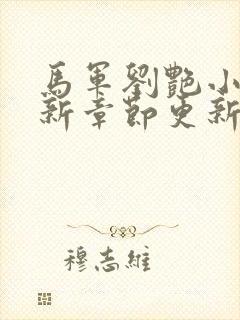 馬軍劉艷小
新章節更新
穆志維